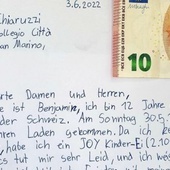 3.6.2022
Chiaruzzi
ollegio Città
an Marino,
10
rte Damen und Herren,
e ist Benjamin, ich bin 12 Jahre
der Schweiz. Am Sonntag 30.5.
hren Laden gekommen. Da ich
, habe ich ein JOY Kinder-Ei (2.10
s tut mir sehr Leid, und ich